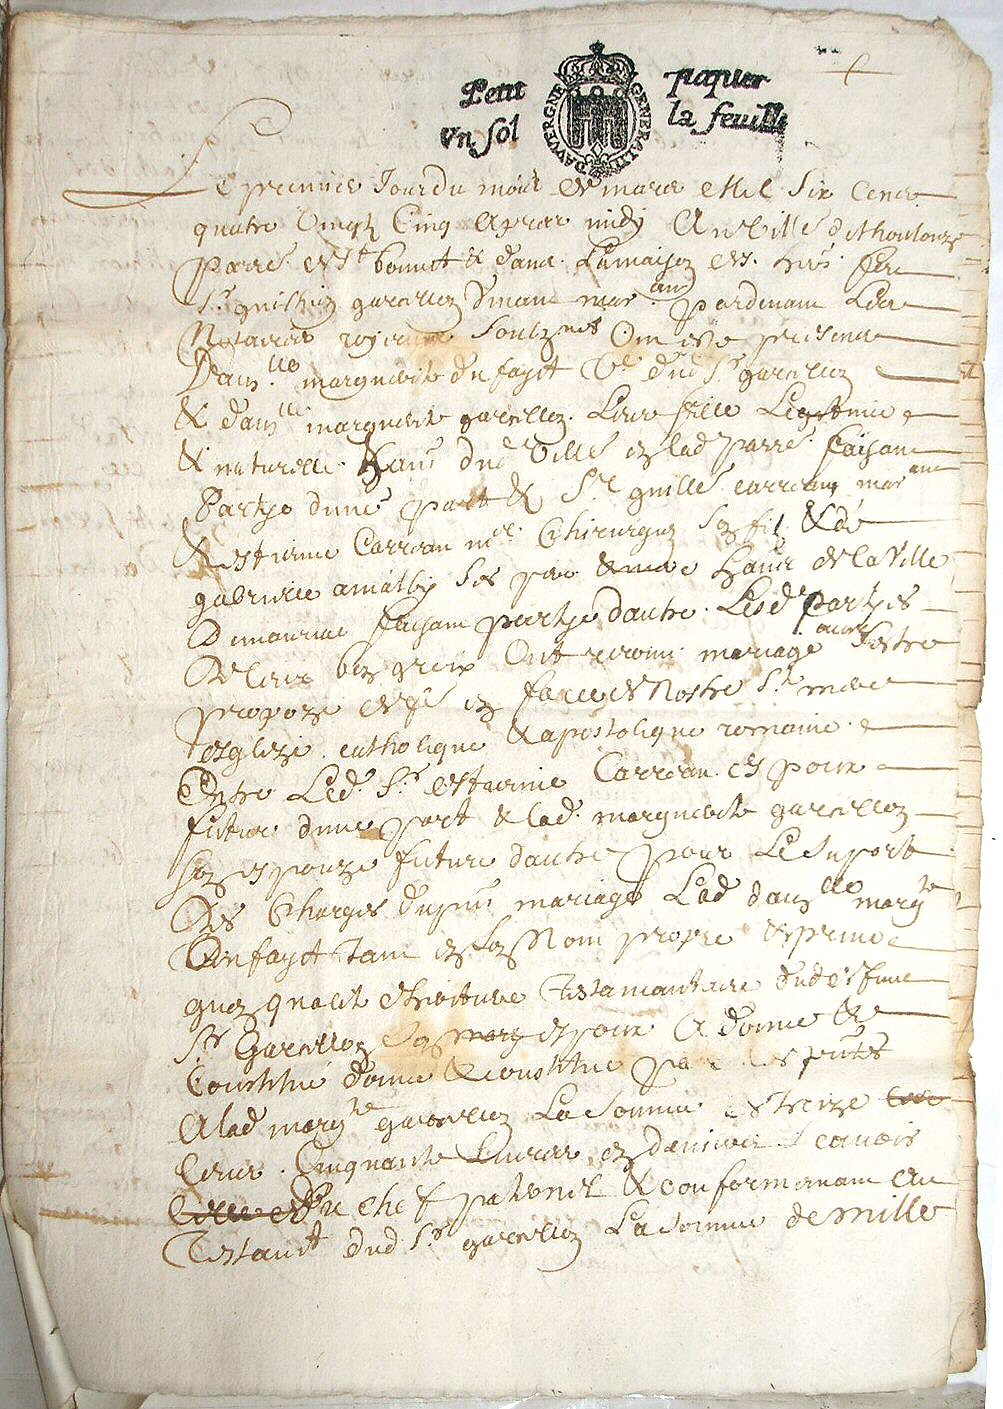 Petit papier
Vn sol la feuille
DAVVERGNE GENERALITE
Le premier Jour du mois de mars Mil Six Cens
quatre Vingtz Cinq apres midy En Ville de
parre de St bonnet & dans La maison
Sr garcellon marant pardevant Les
Notaires royaux Soubznes Ont este presens
Dauzlle marguerite dufayet Ve dud Sr garcellon
& dauzlle marguerite garcellon Leur fille Legitime
& naturelle hans dud Ville en lad parre faisant
Partye dune part & Sr guille carreau marant
& estienne Carreau me Chirurgien Son filz & de
gabrielle amalby Ses pere & mere hans de la Ville
faisant partye dautre Lesd Partyes
De leur bon gré Ont mariage avoir estre
propozé en face de Nostre Ste mere
esglize catholique & apostolique romaine
Entre Led Sr estienne Carreau espoux
futur dune part & lad marguerite garcellon
Son espouze future dautre pour Le Suport
Des Charges du pnt mariage Lad dauzlle margte
Dufayet Tant en Son Nom propre
que en qualité dheritiere Testamantaire dud deffunt
Sr Garcellon Son mary espoux A donné &
Constitué donne & constitue par ces pntes
A lad margte garcellon La Somme de treize
Cens Cinquante Livres en deniers Scavoir
Du chef paternel & conformemant au
Testamt dud Sr garcellon La Somme de mille